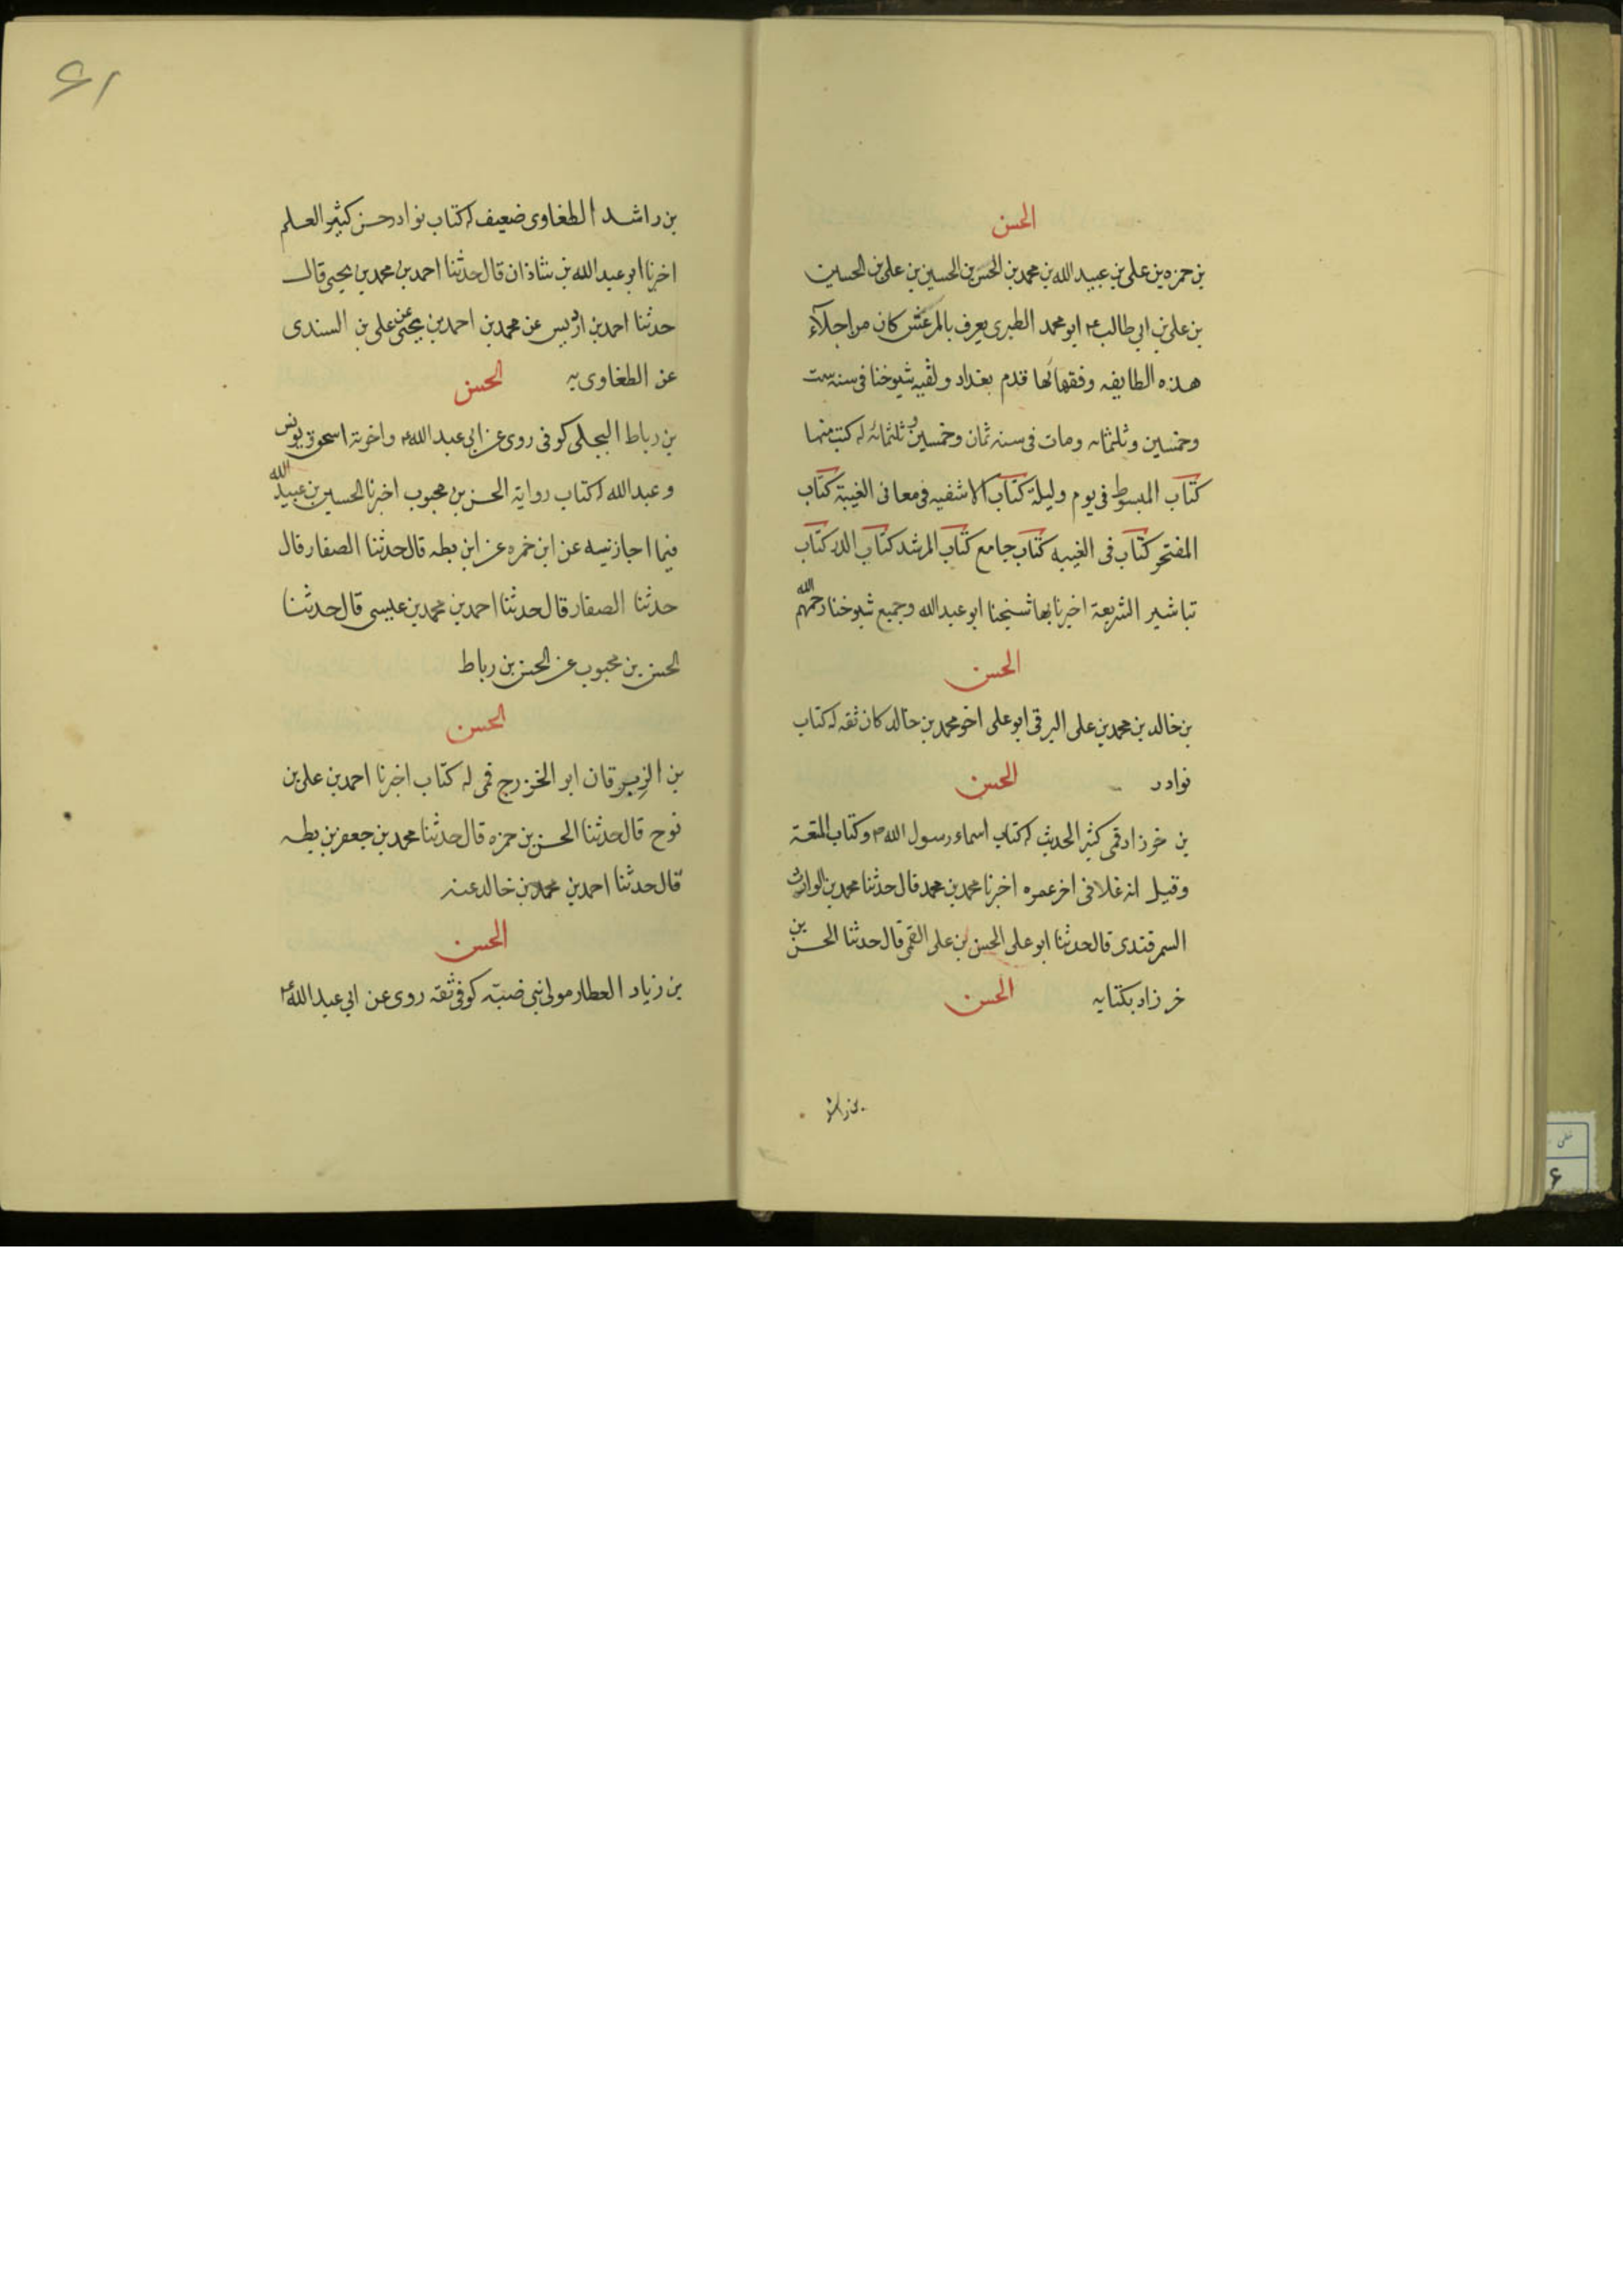 الحسن
بن حمزه بن علی بن عبید الله بن محمد بن الحسن بن الحسین بن علی بن الحسین
بن علی بن ابی طالب ع ابو محمد الطبری یعرف بالمرعش کان من اجلآء
هذه الطایفه وفقهائها قدم بغداد ولقیه شیوخنا فی سنه ست
وخمسین وثلثمائه ومات فی سنه ثمان وخمسین وثلثمائه له کتب منها
کتاب المبسوط فی یوم ولیلة کتاب الاشفیه فی معانی الغیبة کتاب
المفتخر کتاب فی الغیبه کتاب جامع کتاب المرشد کتاب الدر کتاب
تباشیر الشریعة اخبرنا بها شیخنا ابو عبد الله وجمیع شیوخنا رحمهم الله
الحسن
بن خالد بن محمد بن علی البرقی ابو علی اخو محمد بن خالد کان ثقه له کتاب
نوادر الحسن
بن خرزاد قمی کثیر الحدیث له کتاب اسماء رسول الله ص وکتاب المتعة
وقیل انه غلا فی اخر عمره اخبرنا محمد بن محمد قال حدثنا محمد بن الوارث
السمرقندی قال حدثنا ابو علی الحسن بن علی القمی قال حدثنا الحسن بن
خرزاد بکتابه الحسن
بن راشد
۶۱
بن راشد الطغاوی ضعیف له کتاب نوادر حسن کثیر العلم
اخبرنا ابو عبد الله بن شاذان قال حدثنا احمد بن محمد بن یحیی قال
حدثنا احمد بن ادریس عن محمد بن احمد بن یحیی عن علی بن السندی
عن الطغاوی به الحسن
بن رباط البجلی کوفی روی عن ابی عبد الله ع واخوته اسحق ویونس
وعبد الله له کتاب روایة الحسن بن محبوب اخبرنا الحسین بن عبید الله
فیما اجازنیه عن ابن حمزه عن ابن بطه قال حدثنا الصفار قال
حدثنا الصفار قال حدثنا احمد بن محمد بن عیسی قال حدثنا
الحسن بن محبوب عن الحسن بن رباط
الحسن
بن الزبرقان ابو الخزرج قمی له کتاب اخبرنا احمد بن علی بن
نوح قال حدثنا الحسن بن حمزه قال حدثنا محمد بن جعفر بن بطه
قال حدثنا احمد بن محمد بن خالد عنه
الحسن
بن زیاد العطار مولی بنی ضبّه کوفی ثقه روی عن ابی عبد الله ع
خطی
۶